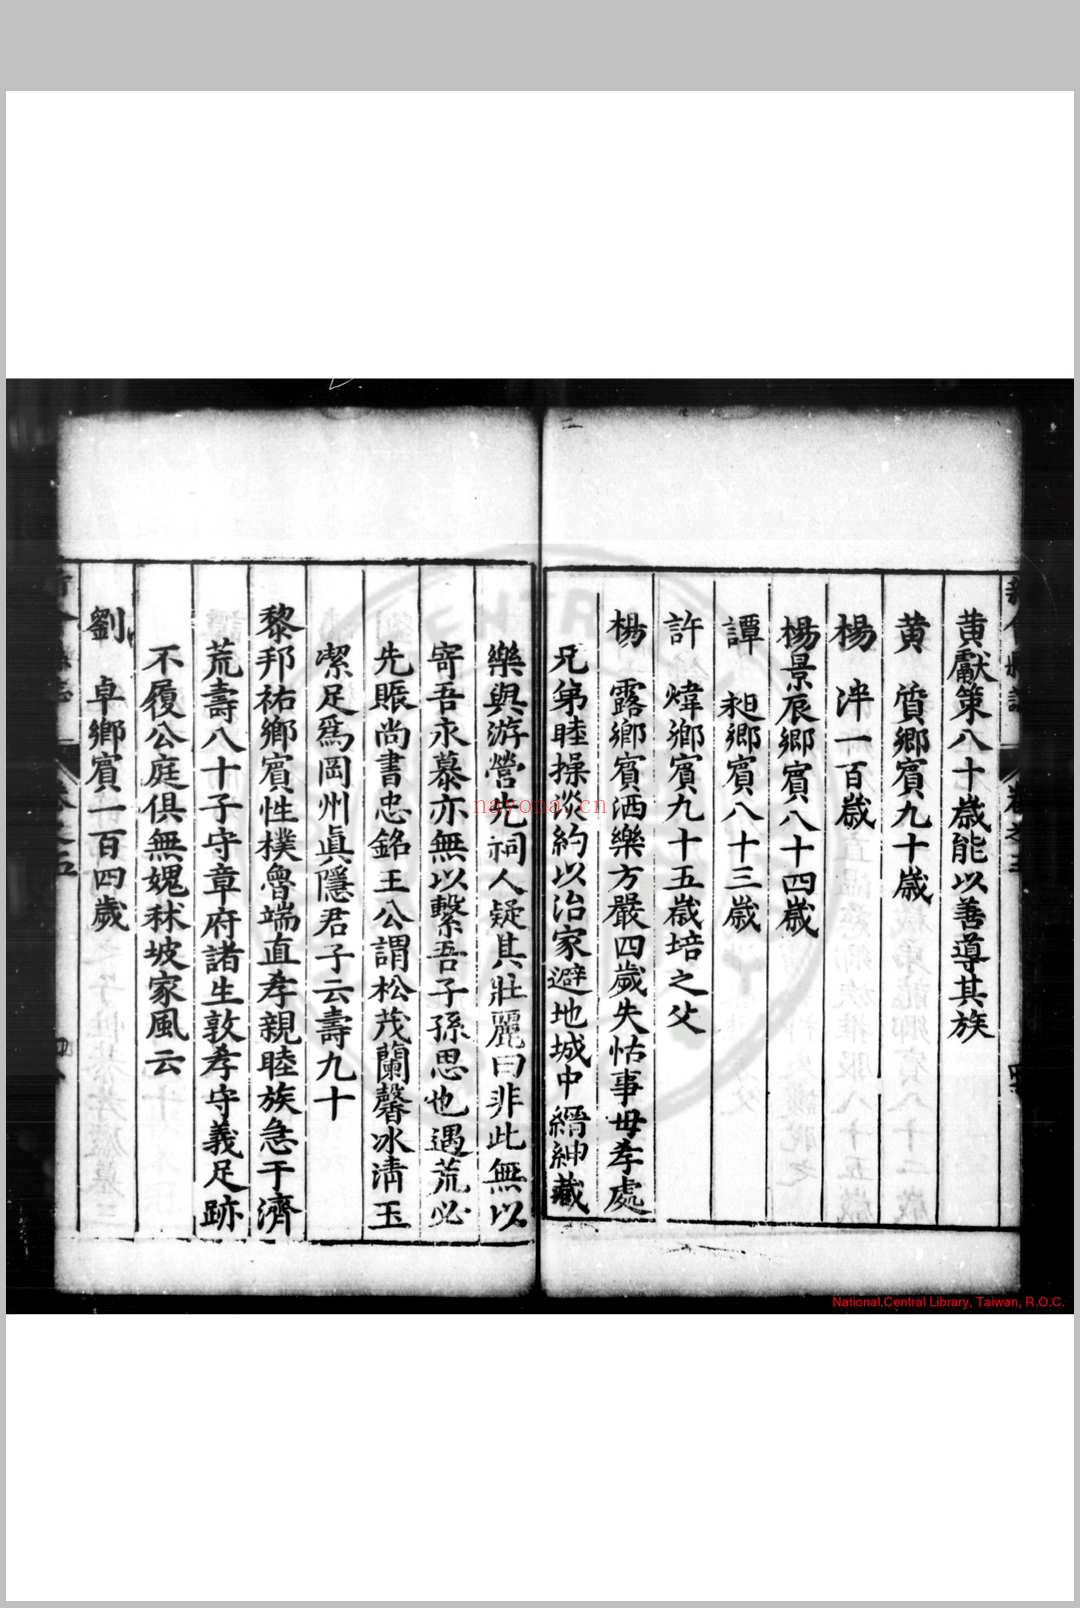 黄獻策八十歲能以善導其族
黄　質鄉賓九十歲
楊　泮一百歲
楊景辰鄉賓八十四歲
譚　昶鄉賓八十三歲
許　煒鄉賓九十五歲培之父
楊　露鄉賓洒樂方嚴四歲失怙事毋孝處
兄弟睦操淡約以治家避地城中縉紳藏
樂與游營先祠人疑其壯麗曰非此無以
寄吾永慕亦無以繫吾子孫思也遇荒必
先賑尚書忠銘王公謂松茂蘭馨冰淸玉
潔足爲岡州眞隱君子云壽九十
黎邦祐鄉賓性樸魯端直孝親睦族急于濟
荒壽八十子守章府諸生敦孝守義足跡
不履公庭俱無媿秫坡家風云
劉　卓鄉賓一百四歲
nayona.cn
National Central Library, Taiwan, R.O.C.